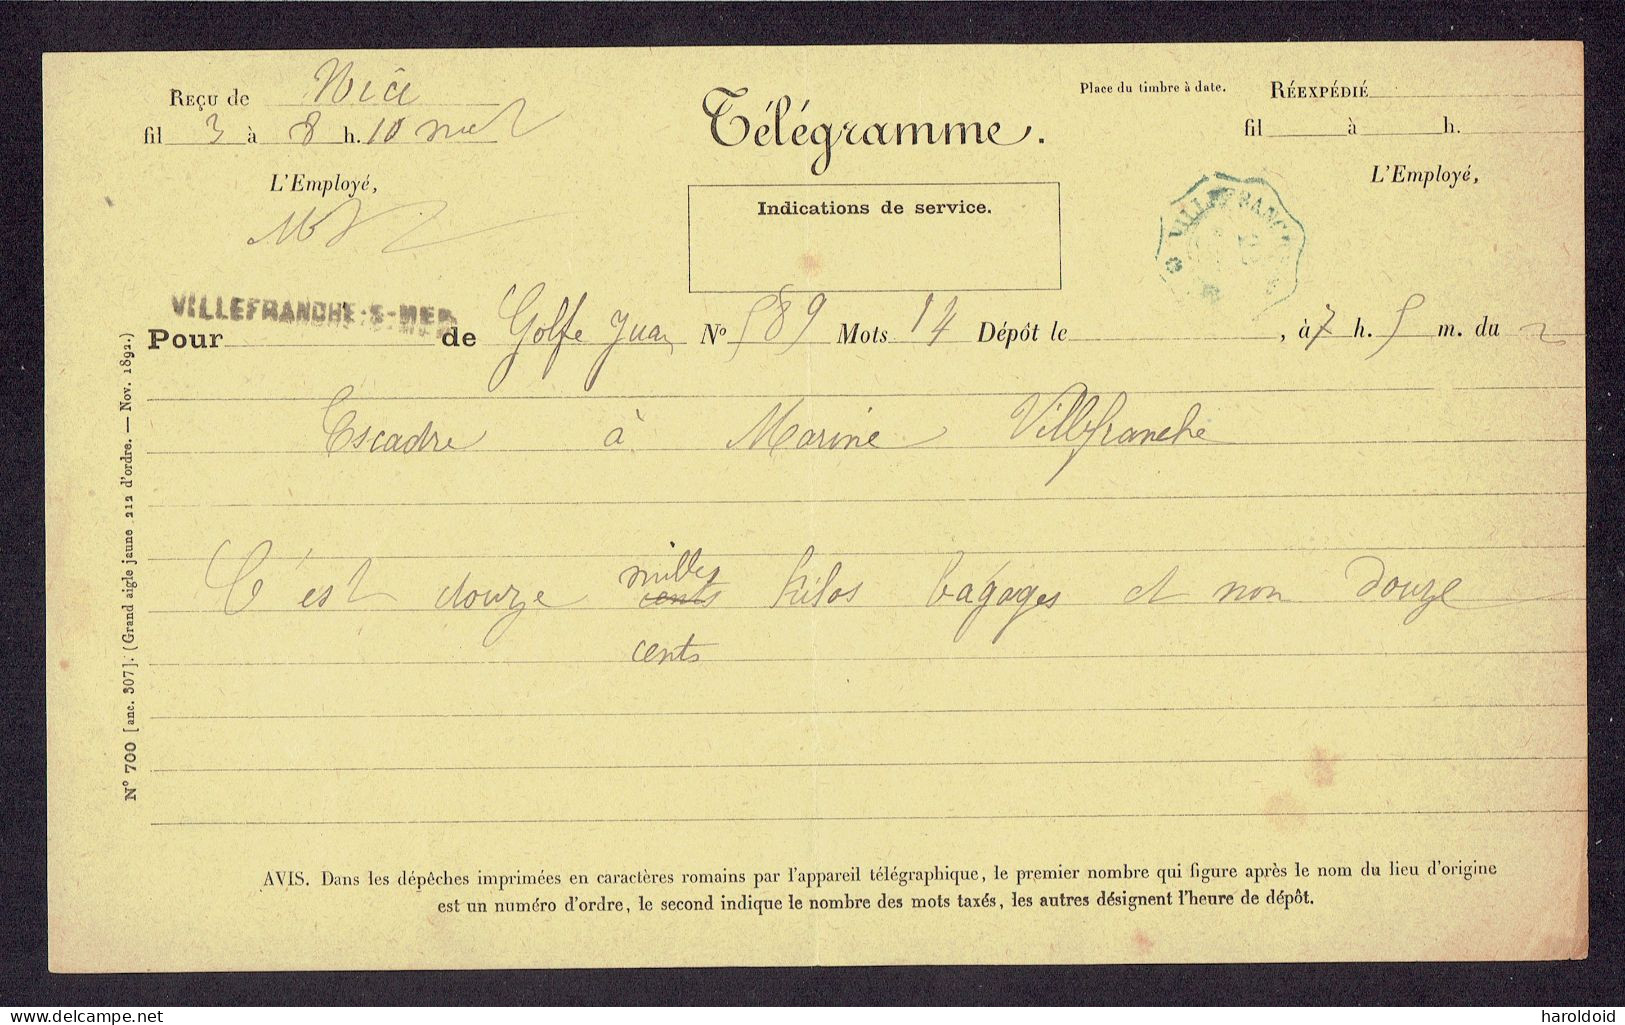 Reçu de Nice
fil 3 à 8 h. 10
L'Employé,
Télégramme.
Indications de service.
Place du timbre à date.
RÉEXPÉDIÉ
fil à h.
L'Employé,
VILLEFRANCHE
VILLEFRANCHE-S-MER
Pour de Golfe Juan N° 589 Mots 14 Dépôt le , à 7 h. 5 m. du
Escadre à Marine Villefranche
milles
C'est douze cents kilos bagages et non douze
cents
N° 700 [anc. 307]. (Grand aigle jaune 212 d'ordre. — Nov. 1892.)
AVIS. Dans les dépêches imprimées en caractères romains par l'appareil télégraphique, le premier nombre qui figure après le nom du lieu d'origine
est un numéro d'ordre, le second indique le nombre des mots taxés, les autres désignent l'heure de dépôt.
www.delcampe.net
haroldoid